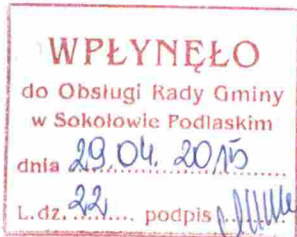 WPŁYNĘŁO
do Obsługi Rady Gminy
w Sokołowie Podlaskim
dnia 29.04.2015
L.dz. 22 podpis